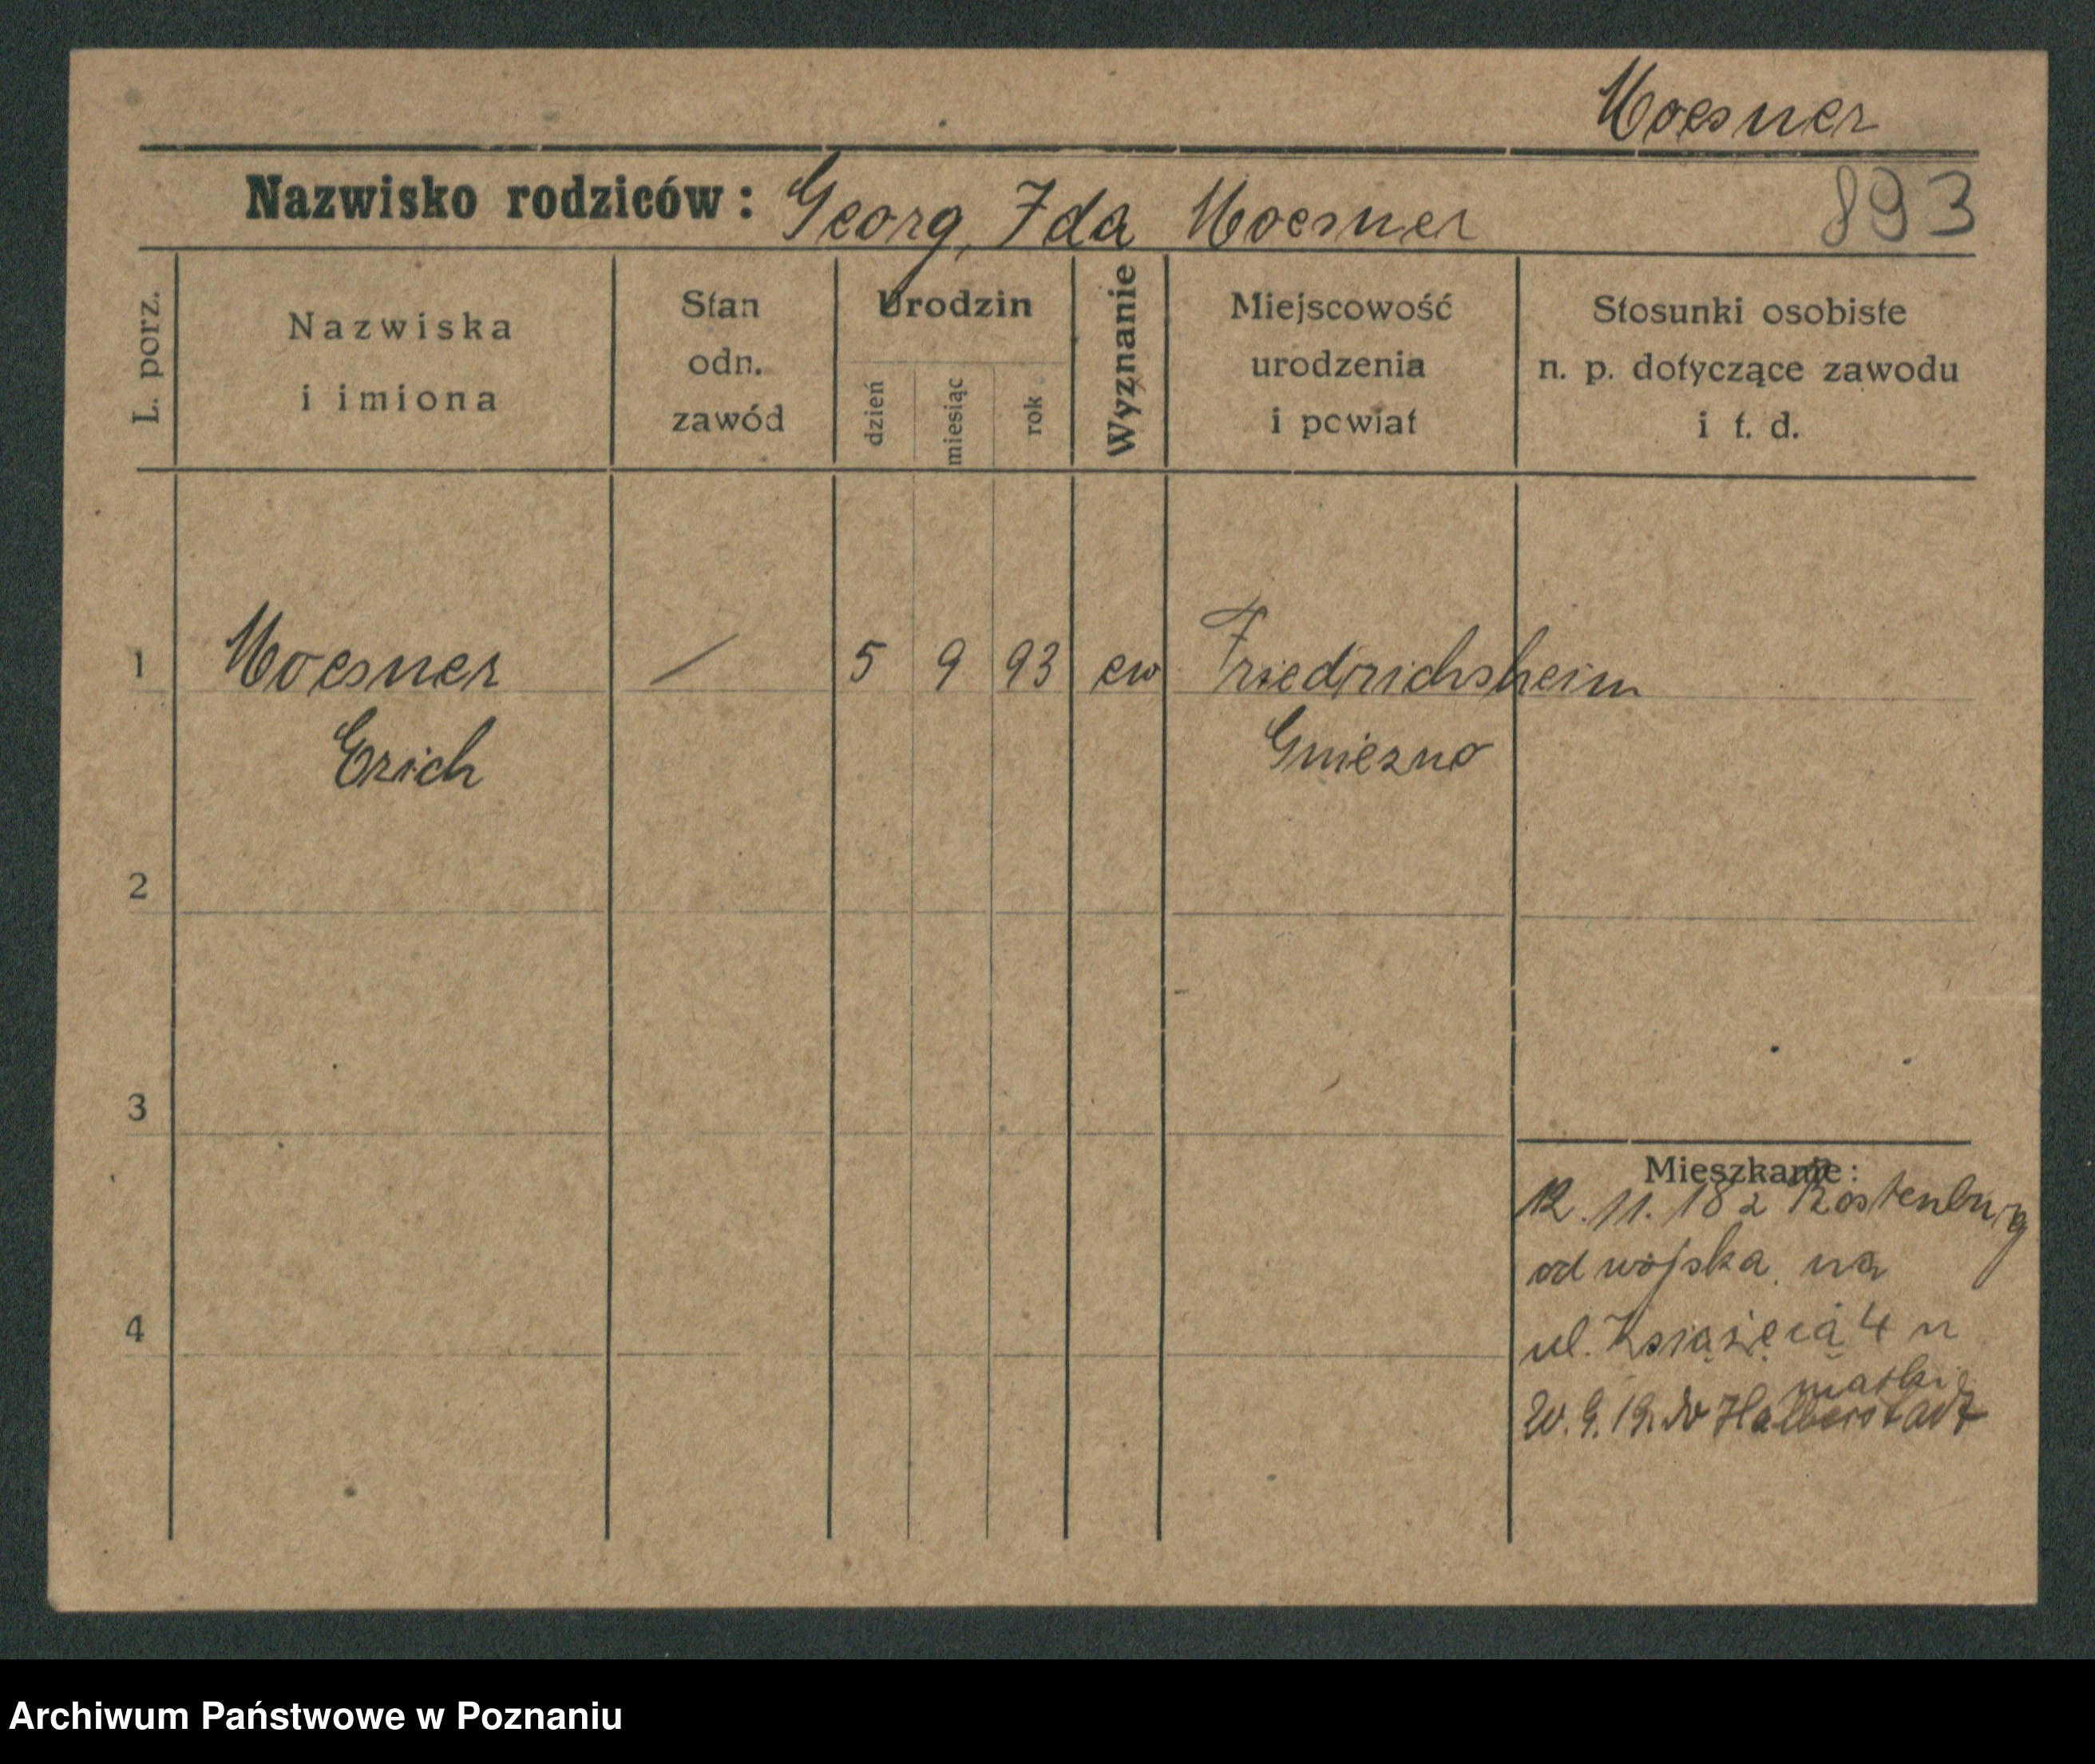 Moesner
Nazwisko rodziców: Georg, Ida Moesner 893
L. porz.
Nazwiska
i imiona
Stan
odn.
zawód
Urodzin
dzień
miesiąc
rok
Wyznanie
Miejscowość
urodzenia
i powiat
Stosunki osobiste
n. p. dotyczące zawodu
i t. d.
1 Moesner / 5 9 93 ew Friedrichsheim
Erich Gniezno
2
3
4
Mieszkanie:
12. 11. 18 z Rastenburg
od wojska na
ul. Książęcą 4 n
matki
20. 9. 19. do Halberstadt
Archiwum Państwowe w Poznaniu